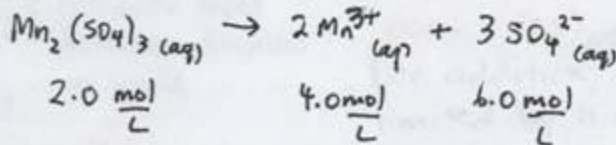 Mn₂(SO₄)₃ (aq) → 2 Mn³⁺ (aq) + 3 SO₄²⁻ (aq)
2.0 mol/L 4.0 mol/L 6.0 mol/L